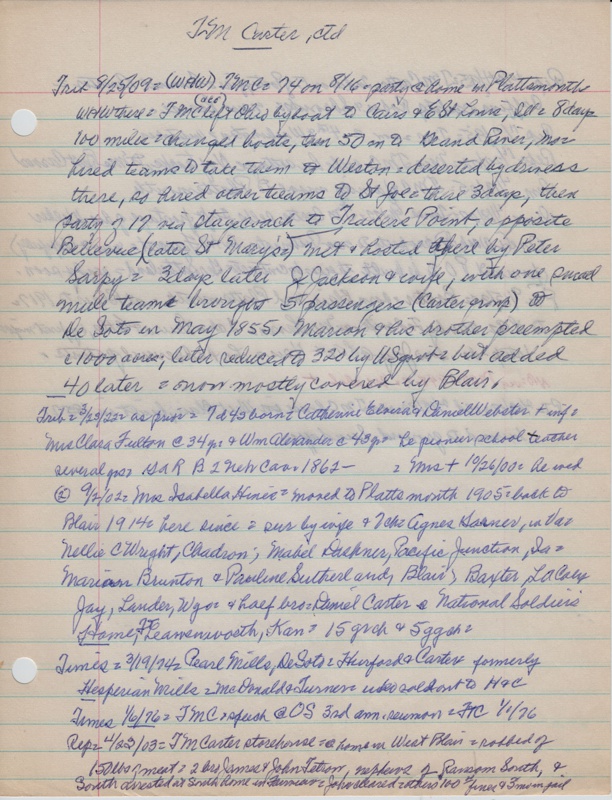 TM Carter, ctd
Trib 8/25/09 = (WHW) TMC = 74 on 8/16 = party @ dome in Plattsmouth
WHW there = TMC (acc) left Ohio by boat to Cairo & E St Louis, Ill = 8 days
100 miles = changed boats, then 50 on to Grand River, Mo =
hired teams to take them to Weston = deserted by drivers
there, so hired other teams to St Joe = thus 3 days, then
party of 17 via stagecoach to Trader's Point, opposite
Bellevue (later St Mary's) met & hosted there by Peter
Sarpy = 3 days later J Jackson & wife, with one
mule team brought 5 passengers (Carter group) to
De Soto in May 1855, Marion & his brother preempted
c 1000 acres; later reduced to 320 by US govt = but added
40 later = now mostly covered by Blair.
Trib = 3/23/22 = as prior = 7 d 43 born = Catherine & Daniel Webster + inf =
Mrs Clara Fulton @ 34 yr & Wm Alexander @ 43 yr = he pioneer school teacher
several yrs GAR B 2 Neb Cav 1862 - = Mrs + 10/26/00 = he wed
② 9/2/02 = Mrs Isabella Hines = moved to Plattsmouth 1905 = back to
Blair 1914 = here since = sur by wife & 7 ch = Agnes, in Va =
Nellie C Wright, Chadron; Mabel, Pacific Junction, Ia =
Marian Brunton & Pauline Sutherland, Blair; Baxter,
Jay, Lander, Wyo = & half bro = Daniel Carter @ National Soldiers
Home, Ft Leavenworth, Kan = 15 grch & 5 ggch =
Times = 3/19/74 = Pearl Mills, De Soto = Hurford & Carter formerly
Hesperian Mills = McDonald & Turner = who sold out to H & C
Times 1/6/76 = TMC speech @ OS 3rd ann. reunion = 1/1/76
Rep = 4/23/03 = TM Carter storehouse = @ home in West Blair = robbed of
150 lbs meat = 2 bro James & John, nephews of Ransom South, &
South arrested at South home in = John others 100 fines & 3 mo in jail